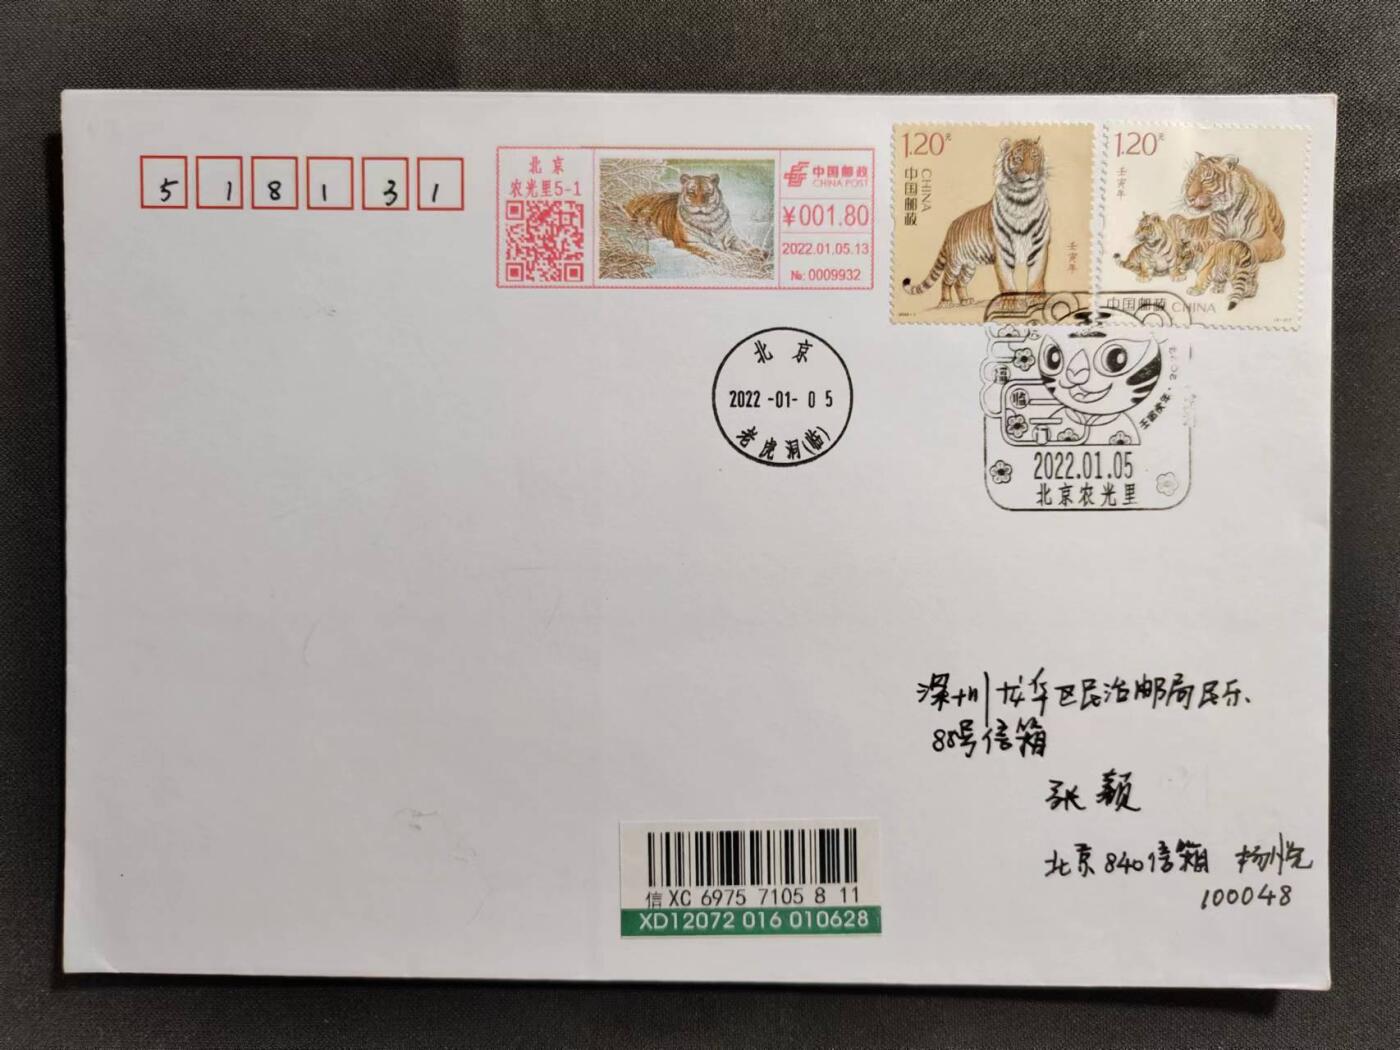 5 1 8 1 3 1
北京
农光里5-1
中国邮政
CHINA POST
¥001.80
2022.01.05.13
№: 0009932
1.20元
CHINA
中国邮政
壬寅年
1.20元
壬寅年
中国邮政 CHINA
北京
2022-01-05
老虎洞(临)
福
临
门
壬寅虎年·2022
2022.01.05
北京农光里
深圳龙华区民治邮局民乐
88号信箱
张颖
北京840信箱 杨悦
100048
信XC 6975 7105 8 11
XD12072 016 010628